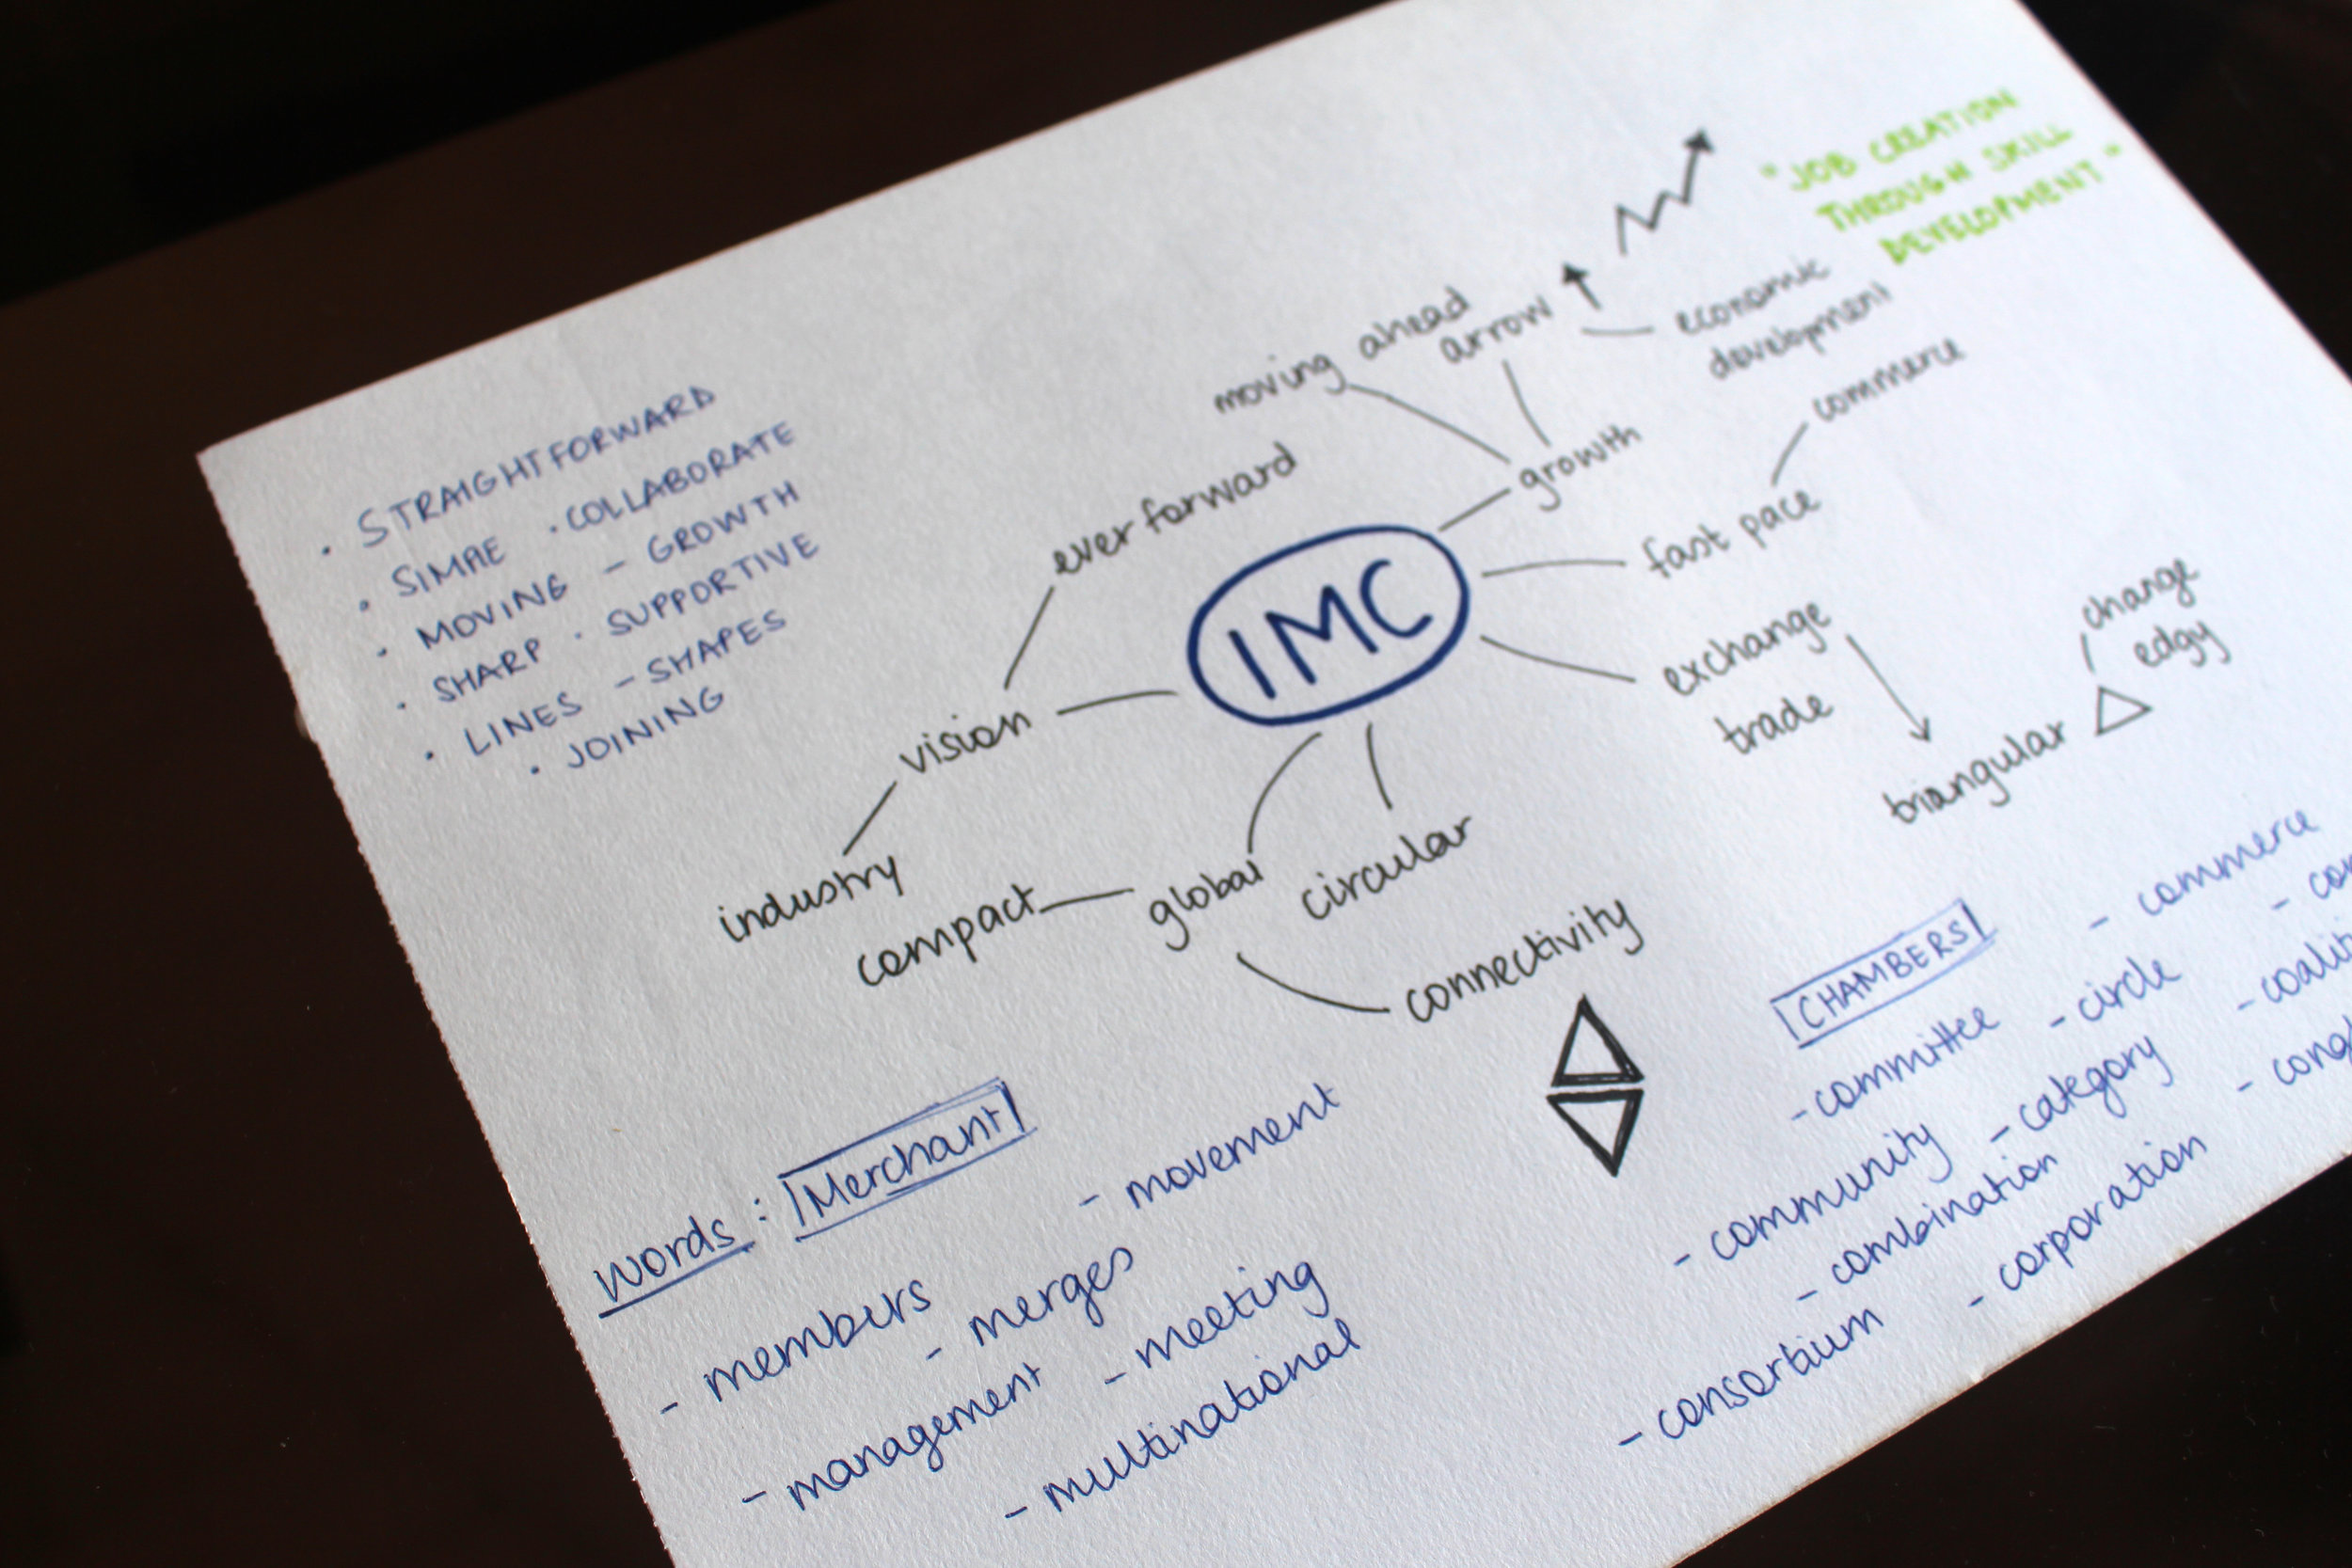 • STRAIGHTFORWARD
• SIMPLE • COLLABORATE
• MOVING – GROWTH
• SHARP • SUPPORTIVE
• LINES – SHAPES
• JOINING
"JOB CREATION
THROUGH SKILL
DEVELOPMENT"
moving ahead
arrow
economic
development
growth
commerce
ever forward
fast pace
IMC
exchange
trade
change
edgy
triangular
vision
industry
compact
global
circular
connectivity
Words : Merchant
- movement
- members
- merges
- management
- meeting
- multinational
CHAMBERS
- commerce
- committee
- circle
- community
- category
- combination
- consortium
- corporation